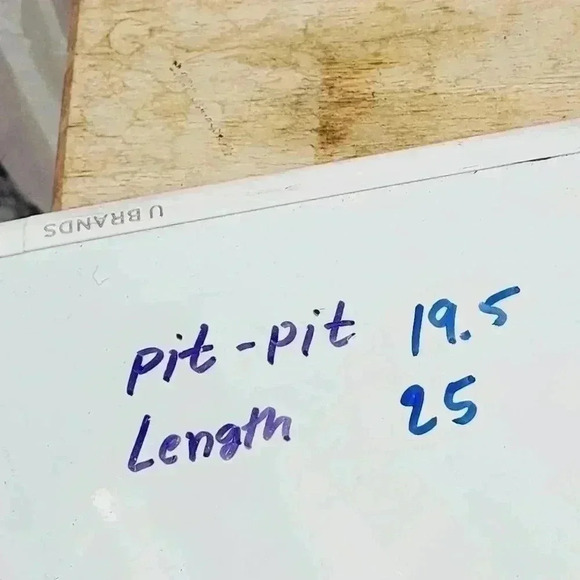 U BRANDS
pit-pit 19.5
Length 25